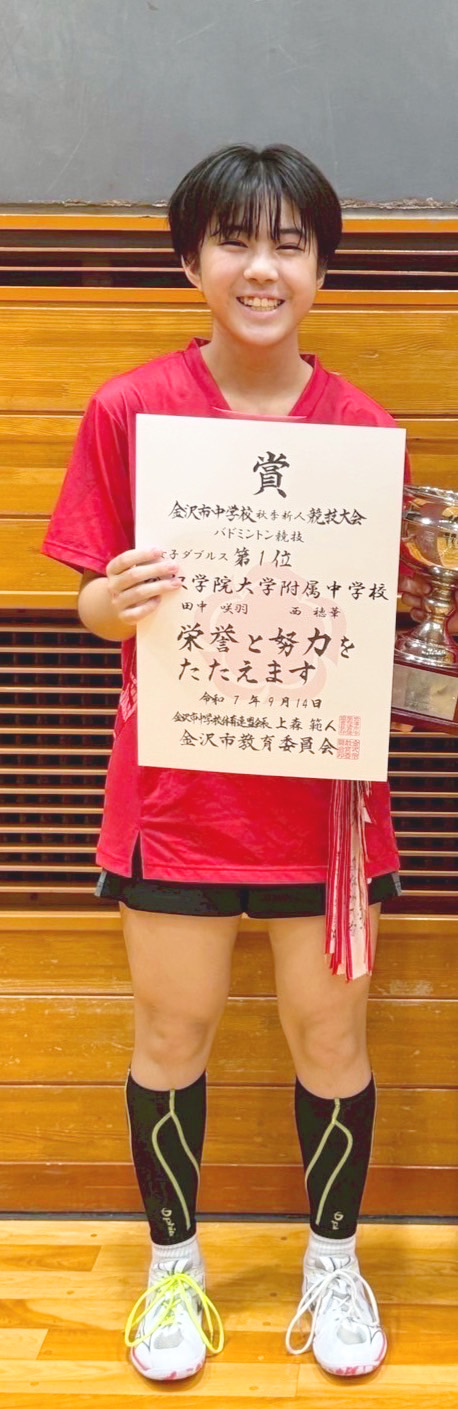 賞
金沢市中学校秋季新人競技大会
バドミントン競技
女子ダブルス 第1位
学院大学附属中学校
田中 咲羽 西 穂華
栄誉と努力を
たたえます
令和7年9月14日
金沢市中学校体育連盟会長 上森 範人
金沢市教育委員会